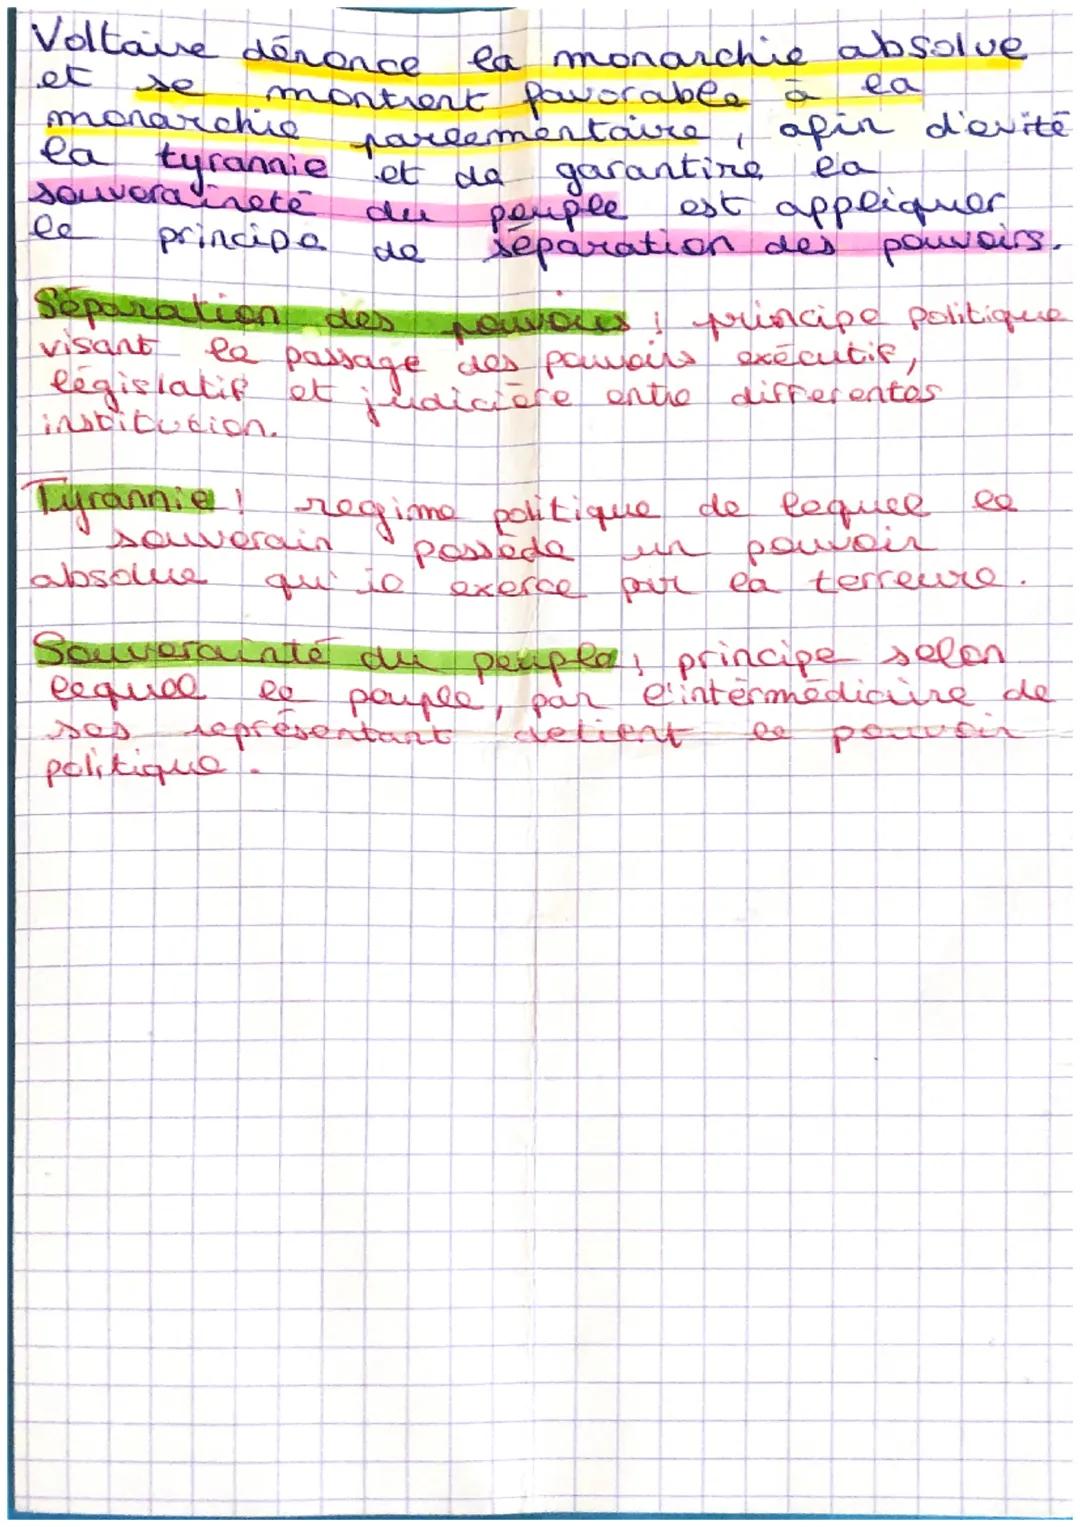 Voltaire dénonce la monarchie absolue
et se montrent favorable à la
monarchie parlementaire, afin d'evité
la tyrannie et de garantire la
souveraineté du peuple est appliquer
le principe de séparation des pouvoirs.
Séparation des pouvoirs : principe politique
visant le passage des pouvoirs exécutif,
législatif et judicière entre differentes
institution.
Tyrannie : regime politique de lequel le
souverain possède un pouvoir
absolue qu'il exerce par la terreure.
Souverainté du peuple : principe selon
lequel le peuple, par l'intermédiaire de
ses représentant detient le pouvoir
politique.